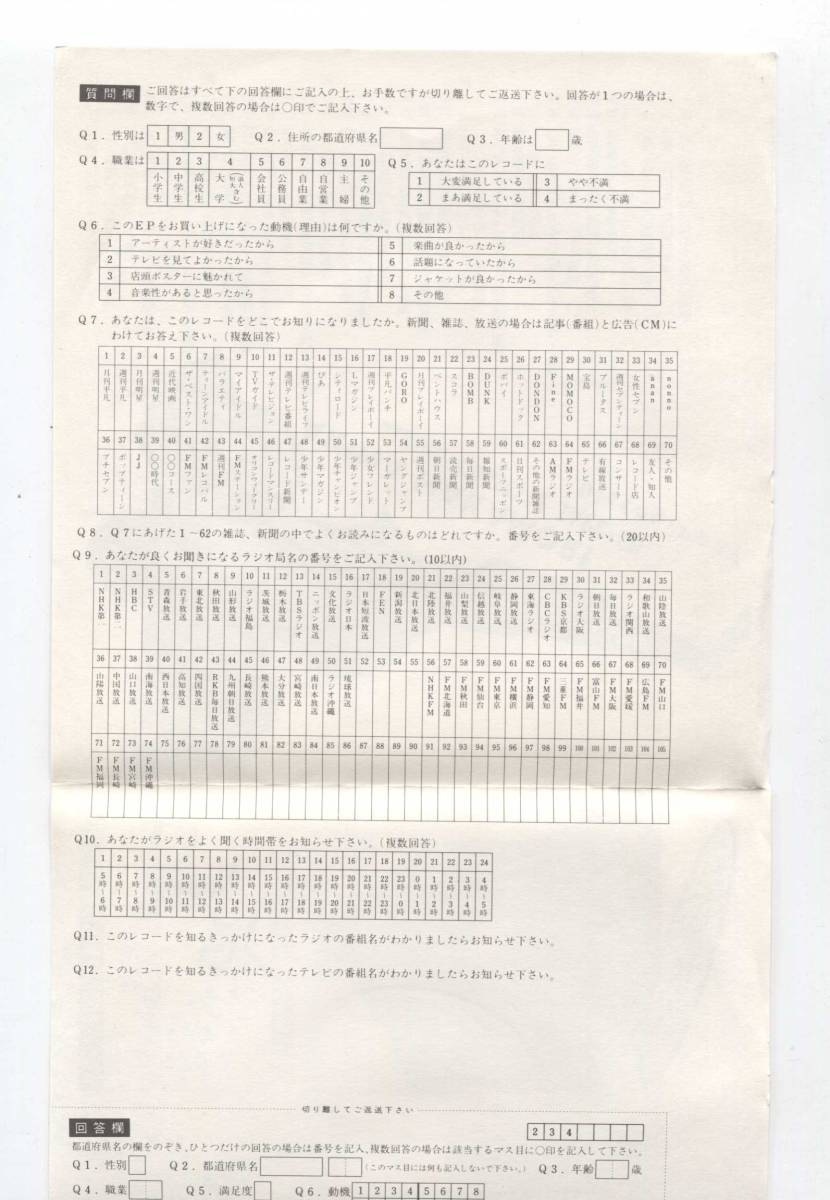 質問欄 ご回答はすべて下の回答欄にご記入の上、お手数ですが切り離してご返送下さい。回答が1つの場合は、
数字で、複数回答の場合は○印でご記入下さい。
Q1．性別は 1 男 2 女 Q2．住所の都道府県名 Q3．年齢は 歳
Q4．職業は 1 2 3 4 5 6 7 8 9 10 Q5．あなたはこのレコードに
小学生 中学生 高校生 大学 会社員 公務員 自由業 自営業 主婦 その他
1 大変満足している 3 やや不満
2 まあ満足している 4 まったく不満
Q6．このEPをお買い上げになった動機(理由)は何ですか。(複数回答)
1 アーティストが好きだったから 5 楽曲が良かったから
2 テレビを見てよかったから 6 話題になっていたから
3 店頭ポスターに魅かれて 7 ジャケットが良かったから
4 音楽性があると思ったから 8 その他
Q7．あなたは、このレコードをどこでお知りになりましたか。新聞、雑誌、放送の場合は記事(番組)と広告(CM)に
わけてお答え下さい。(複数回答)
1 2 3 4 5 6 7 8 9 10 11 12 13 14 15 16 17 18 19 20 21 22 23 24 25 26 27 28 29 30 31 32 33 34 35
月刊平凡 週刊平凡 月刊明星 週刊明星 近代映画 ザ・ベスト・ワン ティーンアイドル バラエティ マイアイドル TVガイド ザ・テレビジョン 週刊テレビ番組 週刊テレビライフ ぴあ シティロード Lマガジン 週刊プレイボーイ 平凡パンチ GORO 月刊プレイボーイ ペントハウス スコラ BOMB DUNK ポパイ ホットドック DONDON Fine MOMOCO 宝島 ブルータス 週刊セブンティーン 女性セブン anan nonno
36 37 38 39 40 41 42 43 44 45 46 47 48 49 50 51 52 53 54 55 56 57 58 59 60 61 62 63 64 65 66 67 68 69 70
プチセブン ポップティーン JJ 〇〇時代 〇〇コース FMファン FMレコパル 週刊FM FMステーション オリコンウィークリー レコードマンスリー レコード新聞 少年サンデー 少年マガジン 少年チャンピオン 少年ジャンプ 少女フレンド マーガレット ヤングジャンプ 週刊ポスト 朝日新聞 読売新聞 毎日新聞 報知新聞 スポーツニッポン 日刊スポーツ その他の新聞雑誌 AMラジオ FMラジオ テレビ 有線放送 コンサート レコード店 友人・知人 その他
Q8．Q7にあげた1～62の雑誌、新聞の中でよくお読みになるものはどれですか。番号をご記入下さい。(20以内)
Q9．あなたが良くお聞きになるラジオ局名の番号をご記入下さい。(10以内)
1 2 3 4 5 6 7 8 9 10 11 12 13 14 15 16 17 18 19 20 21 22 23 24 25 26 27 28 29 30 31 32 33 34 35
NHK第一 NHK第二 HBC STV 青森放送 岩手放送 東北放送 秋田放送 山形放送 ラジオ福島 茨城放送 栃木放送 TBSラジオ ニッポン放送 文化放送 ラジオ日本 日本短波放送 FEN 新潟放送 北日本放送 北陸放送 福井放送 山梨放送 信越放送 岐阜放送 静岡放送 東海ラジオ CBCラジオ KBS京都 ラジオ大阪 朝日放送 毎日放送 ラジオ関西 和歌山放送 山陰放送
36 37 38 39 40 41 42 43 44 45 46 47 48 49 50 51 52 53 54 55 56 57 58 59 60 61 62 63 64 65 66 67 68 69 70
山陽放送 中国放送 山口放送 南海放送 西日本放送 高知放送 四国放送 RKB毎日放送 九州朝日放送 長崎放送 熊本放送 大分放送 宮崎放送 南日本放送 ラジオ沖縄 琉球放送 NHKFM FM北海道 FM秋田 FM仙台 FM東京 FM横浜 FM静岡 FM愛知 三重FM FM福井 富山FM FM大阪 FM愛媛 広島FM FM山口
71 72 73 74 75 76 77 78 79 80 81 82 83 84 85 86 87 88 89 90 91 92 93 94 95 96 97 98 99 100 101 102 103 104 105
FM福岡 FM長崎 FM宮崎 FM沖縄
Q10．あなたがラジオをよく聞く時間帯をお知らせ下さい。(複数回答)
1 2 3 4 5 6 7 8 9 10 11 12 13 14 15 16 17 18 19 20 21 22 23 24
5時～6時 6時～7時 7時～8時 8時～9時 9時～10時 10時～11時 11時～12時 12時～13時 13時～14時 14時～15時 15時～16時 16時～17時 17時～18時 18時～19時 19時～20時 20時～21時 21時～22時 22時～23時 23時～0時 0時～1時 1時～2時 2時～3時 3時～4時 4時～5時
Q11．このレコードを知るきっかけになったラジオの番組名がわかりましたらお知らせ下さい。
Q12．このレコードを知るきっかけになったテレビの番組名がわかりましたらお知らせ下さい。
切り離してご返送下さい
回答欄 2 3 4
都道府県名の欄をのぞき、ひとつだけの回答の場合は番号を記入、複数回答の場合は該当するマス目に○印を記入して下さい。
Q1．性別 Q2．都道府県名 (このマス目には何も記入しないで下さい。) Q3．年齢 歳
Q4．職業 Q5．満足度 Q6．動機 1 2 3 4 5 6 7 8